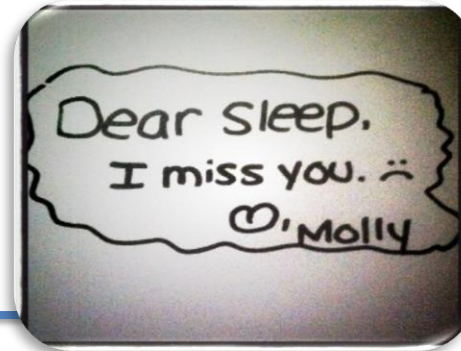 Dear Sleep.
I miss you. :(
♡, Molly